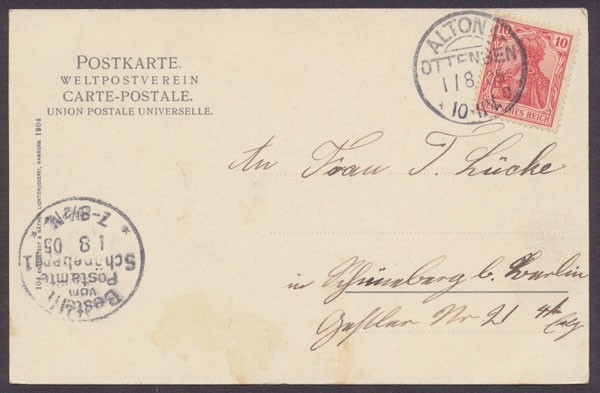 POSTKARTE.
WELTPOSTVEREIN
CARTE-POSTALE.
UNION POSTALE UNIVERSELLE.
ALTONA
OTTENSEN
1 8 05
10-11
10
10
DEUTSCHES REICH
An Frau T. Lücke
in Schöneberg b. Berlin
Geßler Nr 21
Bestellt
vom
Postamte
Schöneberg 1
1 8 05
7-8½N.
HAMBURG 1904